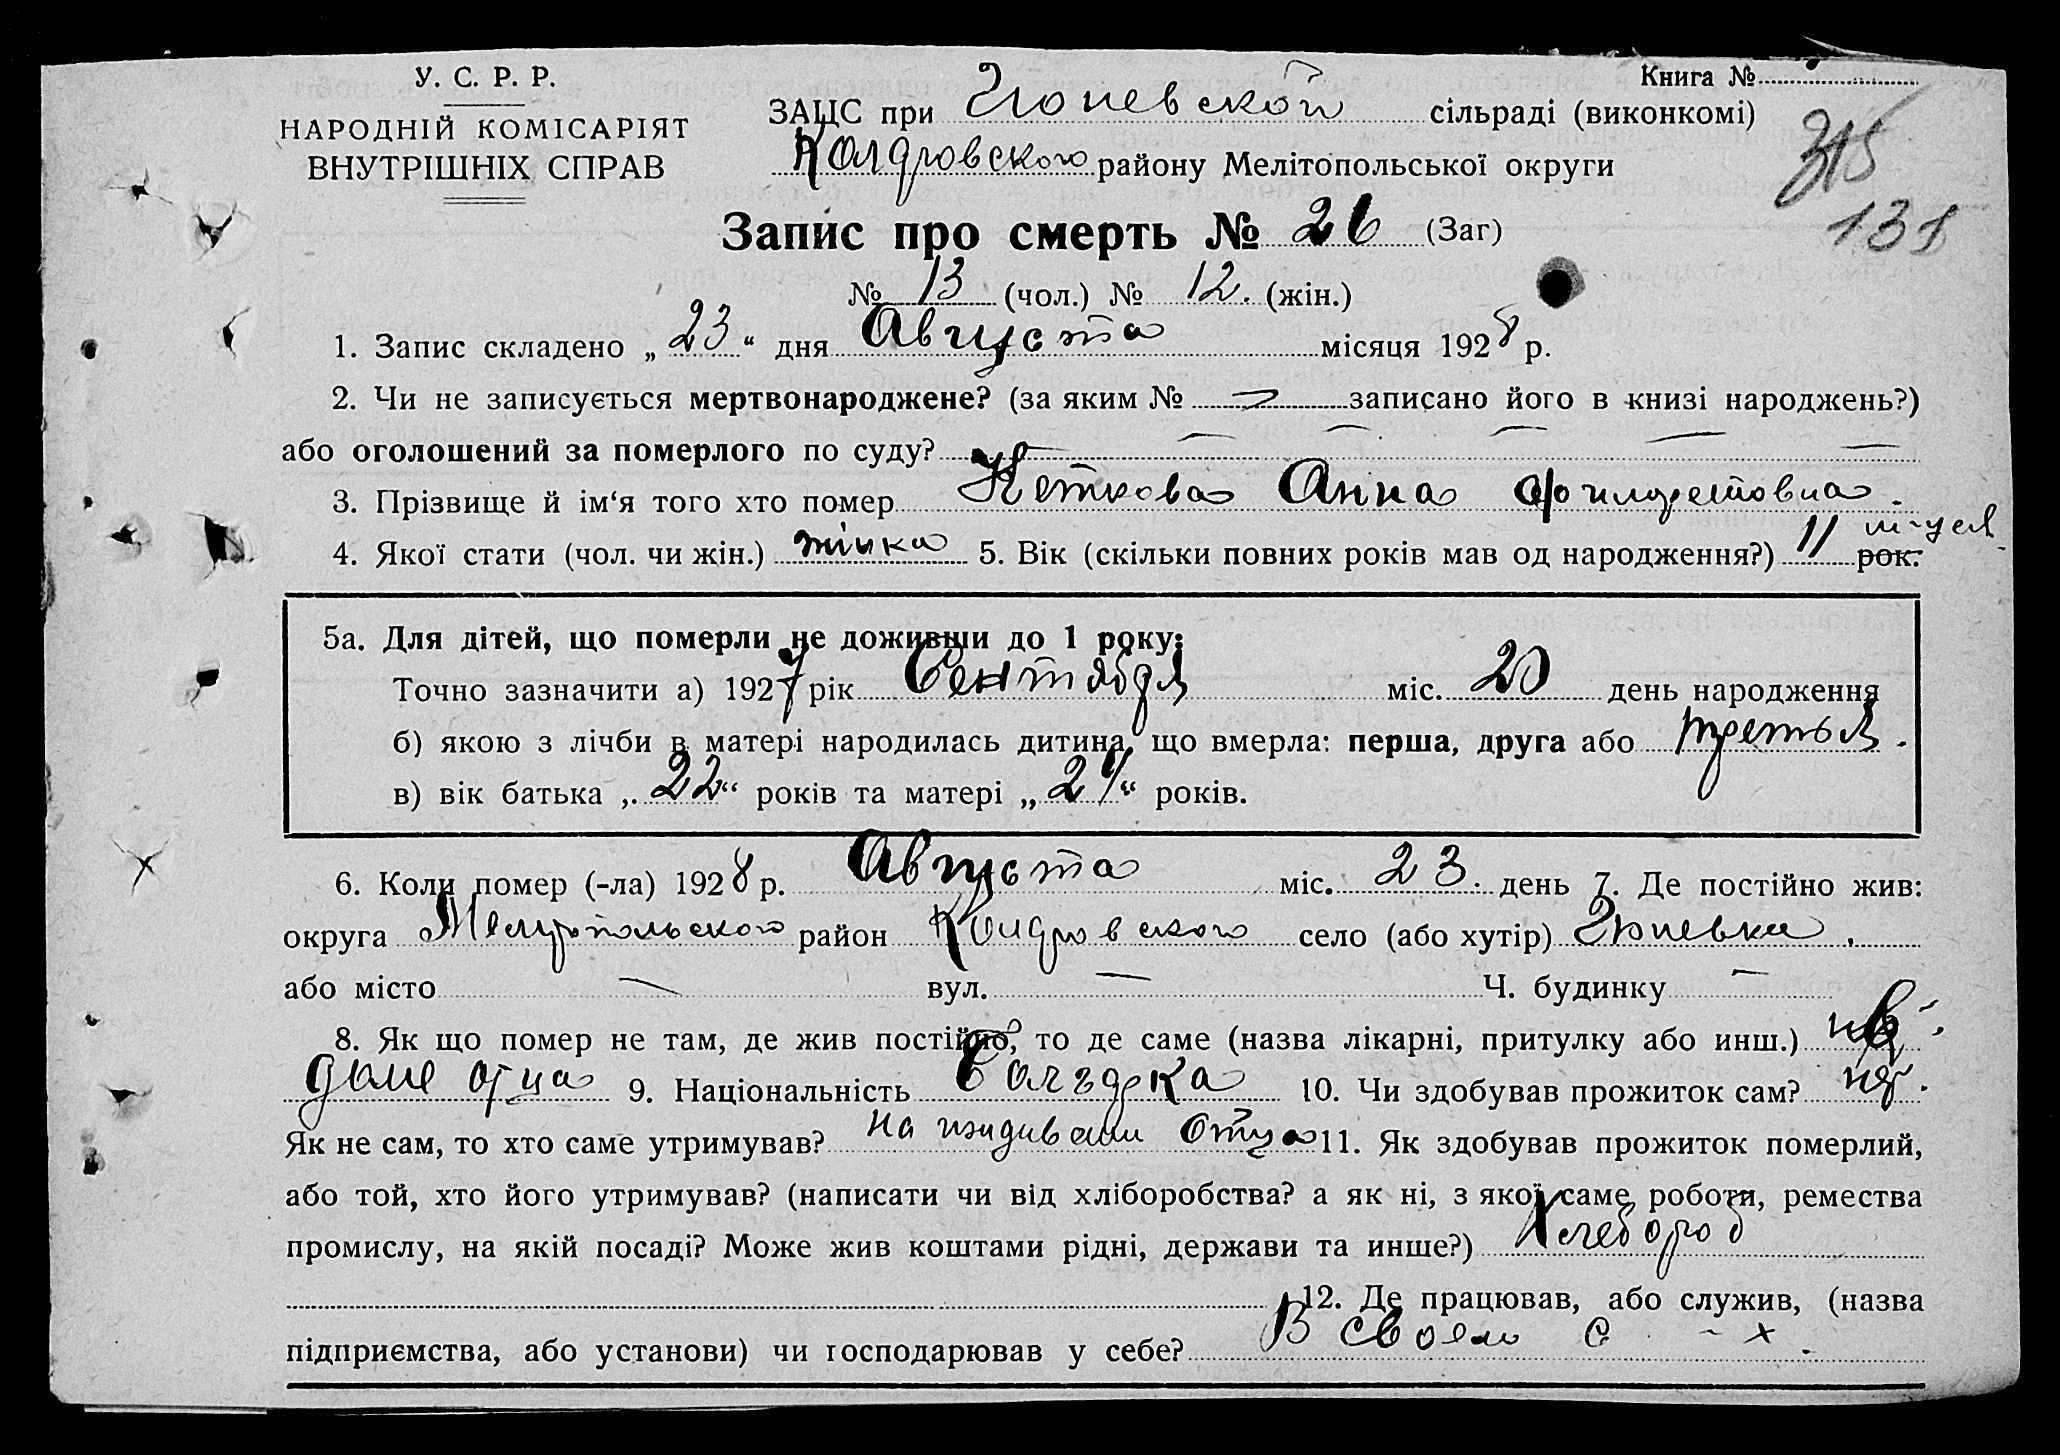 У. С. Р. Р.
НАРОДНІЙ КОМІСАРІЯТ
ВНУТРІШНІХ СПРАВ
Книга №
ЗАЦС при Гюневской сільраді (виконкомі)
Колдровского району Мелітопольської округи
315
131
Запис про смерть № 26 (Заг)
№ 13 (чол.) № 12. (жін.)
1. Запис складено „23“ дня Августа місяця 1928 р.
2. Чи не записується мертвонароджене? (за яким № — записано його в книзі народжень?)
або оголошений за померлого по суду? — — — — —
3. Прізвище й ім‘я того хто помер Неткова Анна
4. Якої стати (чол. чи жін.) жінка 5. Вік (скільки повних років мав од народження?) 11 рок.
5а. Для дітей, що померли не доживши до 1 року:
Точно зазначити а) 1927 рік Сентября міс. 20 день народження
б) якою з лічби в матері народилась дитина, що вмерла: перша, друга або третья.
в) вік батька „22“ років та матері „24“ років.
6. Коли помер (-ла) 1928 р. Августа міс. 23. день 7. Де постійно жив:
округа Мелитопольского район Колдровского село (або хутір) Гюневка.
або місто — вул. — Ч. будинку —
8. Як що помер не там, де жив постійно, то де саме (назва лікарні, притулку або инш.) в
доме отца 9. Національність Болгарка 10. Чи здобував прожиток сам?
Як не сам, то хто саме утримував? На иждивении Отца 11. Як здобував прожиток померлий,
або той, хто його утримував? (написати чи від хліборобства? а як ні, з якої саме роботи, ремества
промислу, на якій посаді? Може жив коштами рідні, держави та инше?) Хлебороб
12. Де працював, або служив, (назва
підприємства, або установи) чи господарював у себе? В своем с - х.